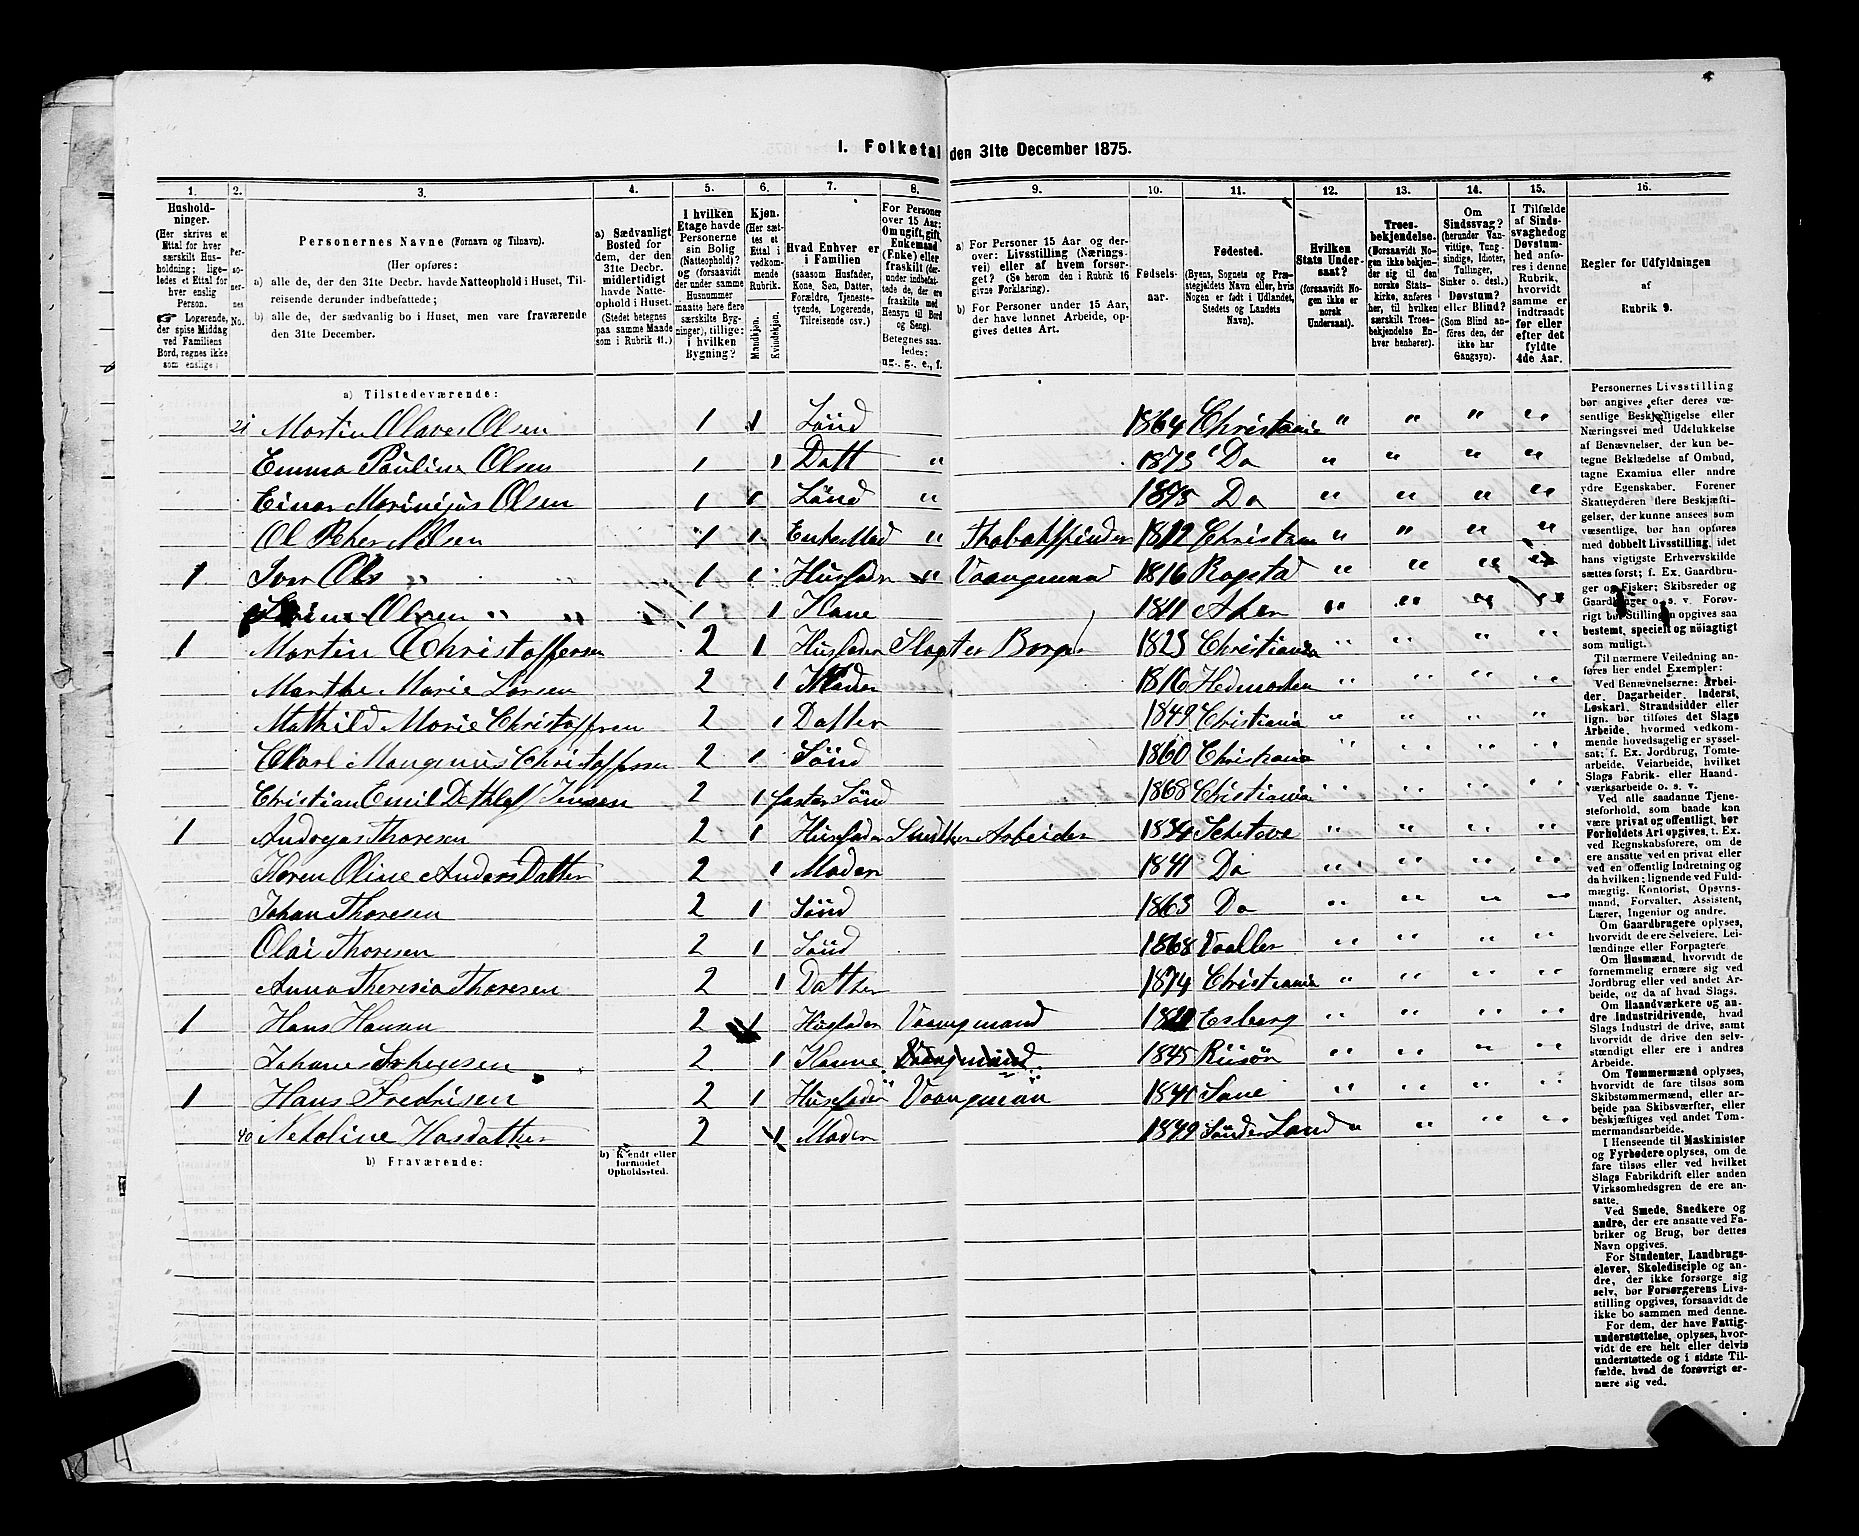 I. Folketal den 31te December 1875.
1. 2. 3. 4. 5. 6. 7. 8. 9. 10. 11. 12. 13. 14. 15. 16.
Husholdninger.
(Her skrives et Ettal for hver særskilt Husholdning; ligeledes et Ettal for hver enslig Person.
☞ Logerende, der spise Middag ved Familiens Bord, regnes ikke som enslige.)
Personernes No.
Personernes Navne (Fornavn og Tilnavn).
(Her opføres:
a) alle de, der den 31te Decbr. havde Natteophold i Huset, Tilreisende derunder indbefattede;
b) alle de, der sædvanlig bo i Huset, men vare fraværende den 31te December.
a) Sædvanligt Bosted for dem, der den 31te Decbr. midlertidigt havde Natteophold i Huset. (Stedet betegnes paa samme Maade som i Rubrik 11.)
I hvilken Etage havde Personerne sin Bolig (Natteophold)? og (forsaavidt der under samme Husnummer maatte høre flere særskilte Bygninger), tillige: i hvilken Bygning?
Kjøn.
(Her sættes et Ettal i vedkommende Rubrik.
Mandkjøn. Kvindekjøn.
Hvad Enhver er i Familien
(saasom Husfader, Kone, Søn, Datter, Forældre, Tjenestetyende, Logerende, Tilreisende osv.)
For Personer over 15 Aar: Om ugift, gift, Enkemand (Enke) eller fraskilt (derunder indbefattede de, der ere fraskilte med Hensyn til Bord og Seng).
Betegnes saaledes: ug., g., e., f.
a) For Personer 15 Aar og derover: Livsstilling (Næringsvei) eller af hvem forsørget? (Se herom den i Rubrik 16 givne Forklaring).
b) For Personer under 15 Aar, der have lønnet Arbeide, opgives dettes Art.
Fødselsaar.
Fødested.
(Byens, Sognets og Præstegjeldets Navn eller, hvis Nogen er født i Udlandet, Stedets og Landets Navn).
Hvilken Stats Undersaat?
(forsaavidt Nogen ikke er norsk Undersaat).
Troesbekjendelse.
(Forsaavidt Nogen ikke bekjender sig til den norske Statskirke, anføres her, til hvilken særskilt Troesbekjendelse Enhver henhører).
Om Sindssvag?
(herunder Vanvittige, Tungsindige, Idioter, Tullinger, Sinker o. desl.)
Døvstum? eller Blind?
(Som Blind anføres den, der ikke har Gangsyn).
I Tilfælde af Sindssvaghed og Døvstumhed anføres i denne Rubrik, hvorvidt samme er indtraadt før eller efter det fyldte 4de Aar.
Regler for Udfyldningen af Rubrik 9.
a) Tilstedeværende:
21 Martin Olaves Olsen 1 1 Sønd 1864 Christiania " " " "
Emma Pauline Olsen 1 1 Datt " 1873 Do " " " "
Einar Marinius Olsen 1 1 Sønd " 1875 Do " " " "
Ol Peter Nilsen 1 1 EnkeMad " 1812 " " " "
1 Iver Ols " " 1 1 Husfader " Vaangmand 1816 Rogstad " " " "
Olsen " " 1 1 Kane 1811 Aker " " " "
1 Martin Christoffersen 2 1 Husfader Slagter Borger 1823 Christiania " " " "
Marthe Marie Larsen 2 1 Moder 1816 Hedmarken " " " "
Mathild Marie Christoffersen 2 1 Datter 1849 Christiania " " " "
Carl Mangnus Christoffersen 2 1 Sønd 1860 Christiania " " " "
Christian Emil Dethlef Jensen 2 1 foster Sønd 1868 Christiania " " " "
1 Andreas Thoresen 2 1 Husfader Arbeider 1834 " " " "
Karen Oline Anders Datter 2 1 Moder 1841 Do " " " "
Johan Thoresen 2 1 Sønd 1863 Do " " " "
Olai Thoresen 2 1 Sønd 1868 Vaaller " " " "
Anna Theresia Thoresen 2 1 Datther 1874 Christiania " " " "
1 Hans Hansen 2 1 Husfader Vaangmand Esberg " " " "
Johanes 2 1 Kanne 1845 Riisør " " " "
1 Hans Fredrisen 2 1 Husfader Vaangman 1841 Lane " " " "
40 Nekoline Hasdatther 2 1 Moder 1849 Sønder Land " " " "
b) Fraværende:
b) Kjendt eller formodet Opholdssted.
Personernes Livsstilling bør angives efter deres væsentlige Beskjæftigelse eller Næringsvei med Udelukkelse af Benævnelser, der kun betegne Beklædelse af Ombud, tagne Examina eller andre ydre Egenskaber. Forener Skatteyderen flere Beskjæftigelser, der kunne ansees som væsentlige, bør han opføres med dobbelt Livsstilling, idet hans vigtigste Erhvervskilde sættes først; f. Ex. Gaardbruger og Fisker; Skibsreder og Gaardbruger o. s. v. Forøvrigt bør Stillingen opgives saa bestemt, specielt og nøiagtigt som muligt.
Til nærmere Veiledning anføres her endel Exempler:
Ved Benævnelserne: Arbeider, Dagarbeider, Inderst, Løskarl, Strandsidder eller lign. bør tilføtes det Slags Arbeide, hvormed vedkommende hovedsagelig er sysselsat; f. Ex. Jordbrug, Tomtearbeide, Veiarbeide, hvilket Slags Fabrik- eller Haandværksarbeide o. s. v.
Ved alle saadanne Tjenesteforhold, som baade kan være privat og offentligt, bør Forholdets Art opgives, t. Ex. ved Regnskabsførere, om de ere ansatte ved en privat eller ved en offentlig Indretning og da hvilken; lignende ved Fuldmægtig, Kontorist, Opsynsmand, Forvalter, Assistent, Lærer, Ingeniør og andre.
Om Gaardbrugere oplyses, hvorvidt de ere Selveiere, Leilændinge eller Forpagtere.
Om Husmænd, hvorvidt de fornemmelig ernære sig ved Jordbrug eller ved andet Arbeide, og da af hvad Slags.
Om Haandværkere og andre Industridrivende, hvad Slags Industri de drive, samt hvorvidt de drive den selvstændigt eller ere i andres Arbeide.
Om Tømmermænd oplyses, hvorvidt de fare tilsøs som Skibstømmermænd, eller arbeide paa Skibsværfter, eller beskjæftiges ved andet Tømmermandsarbeide.
I Henseende til Maskinister og Fyrbødere oplyses, om de fare tilsøs eller ved hvilket Slags Fabrikdrift eller anden Virksomhedsgren de ere ansatte.
Ved Smede, Snedkere og andre, der ere ansatte ved Fabriker og Brug, bør dettes Navn opgives.
For Studenter, Landbrugselever, Skoledisciple og andre, der ikke forsørge sig selv, bør Forsørgerens Livsstilling opgives, forsaavidt de ikke bo sammen med denne.
For dem, der have Fattigunderstøttelse, oplyses, hvorvidt de ere helt eller delvis understøttede og i sidste Tilfælde, hvad de forøvrigt ernære sig ved.